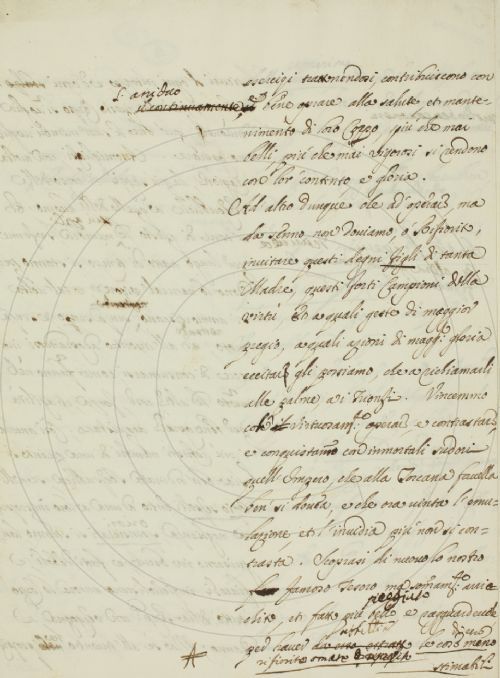 esercizi trattenendosi, contribuiscono con
bene oprare alla salute et mante-
nimento di loro Corpo, più che mai
belli, più che mai vigorosi si rendono
con lor contento e gloria.
Ad altro dunque che ad oprare, ma
da senno non doviamo, o
invitare questi degni figli di tanta
Madre, questi forti Campioni della
virtù. Et a quali geste di maggior
pregio, a quali azioni di magg. gloria
eccitar gli possiamo, che a richiamarli
alle palme, a i Trionfi. Vincemmo
col virtuosam.te operare, e contrastare,
e conquistammo con immortali sudori
quell' Impero che alla Toscana favella
ben si doveva, e che ora vinta l'emu-
lazione et l'invidia più non si con-
trasta. Scoprasi di nuovo lo nostro
famoso Tesoro
et fatto più e
per le cose meno
stimabili